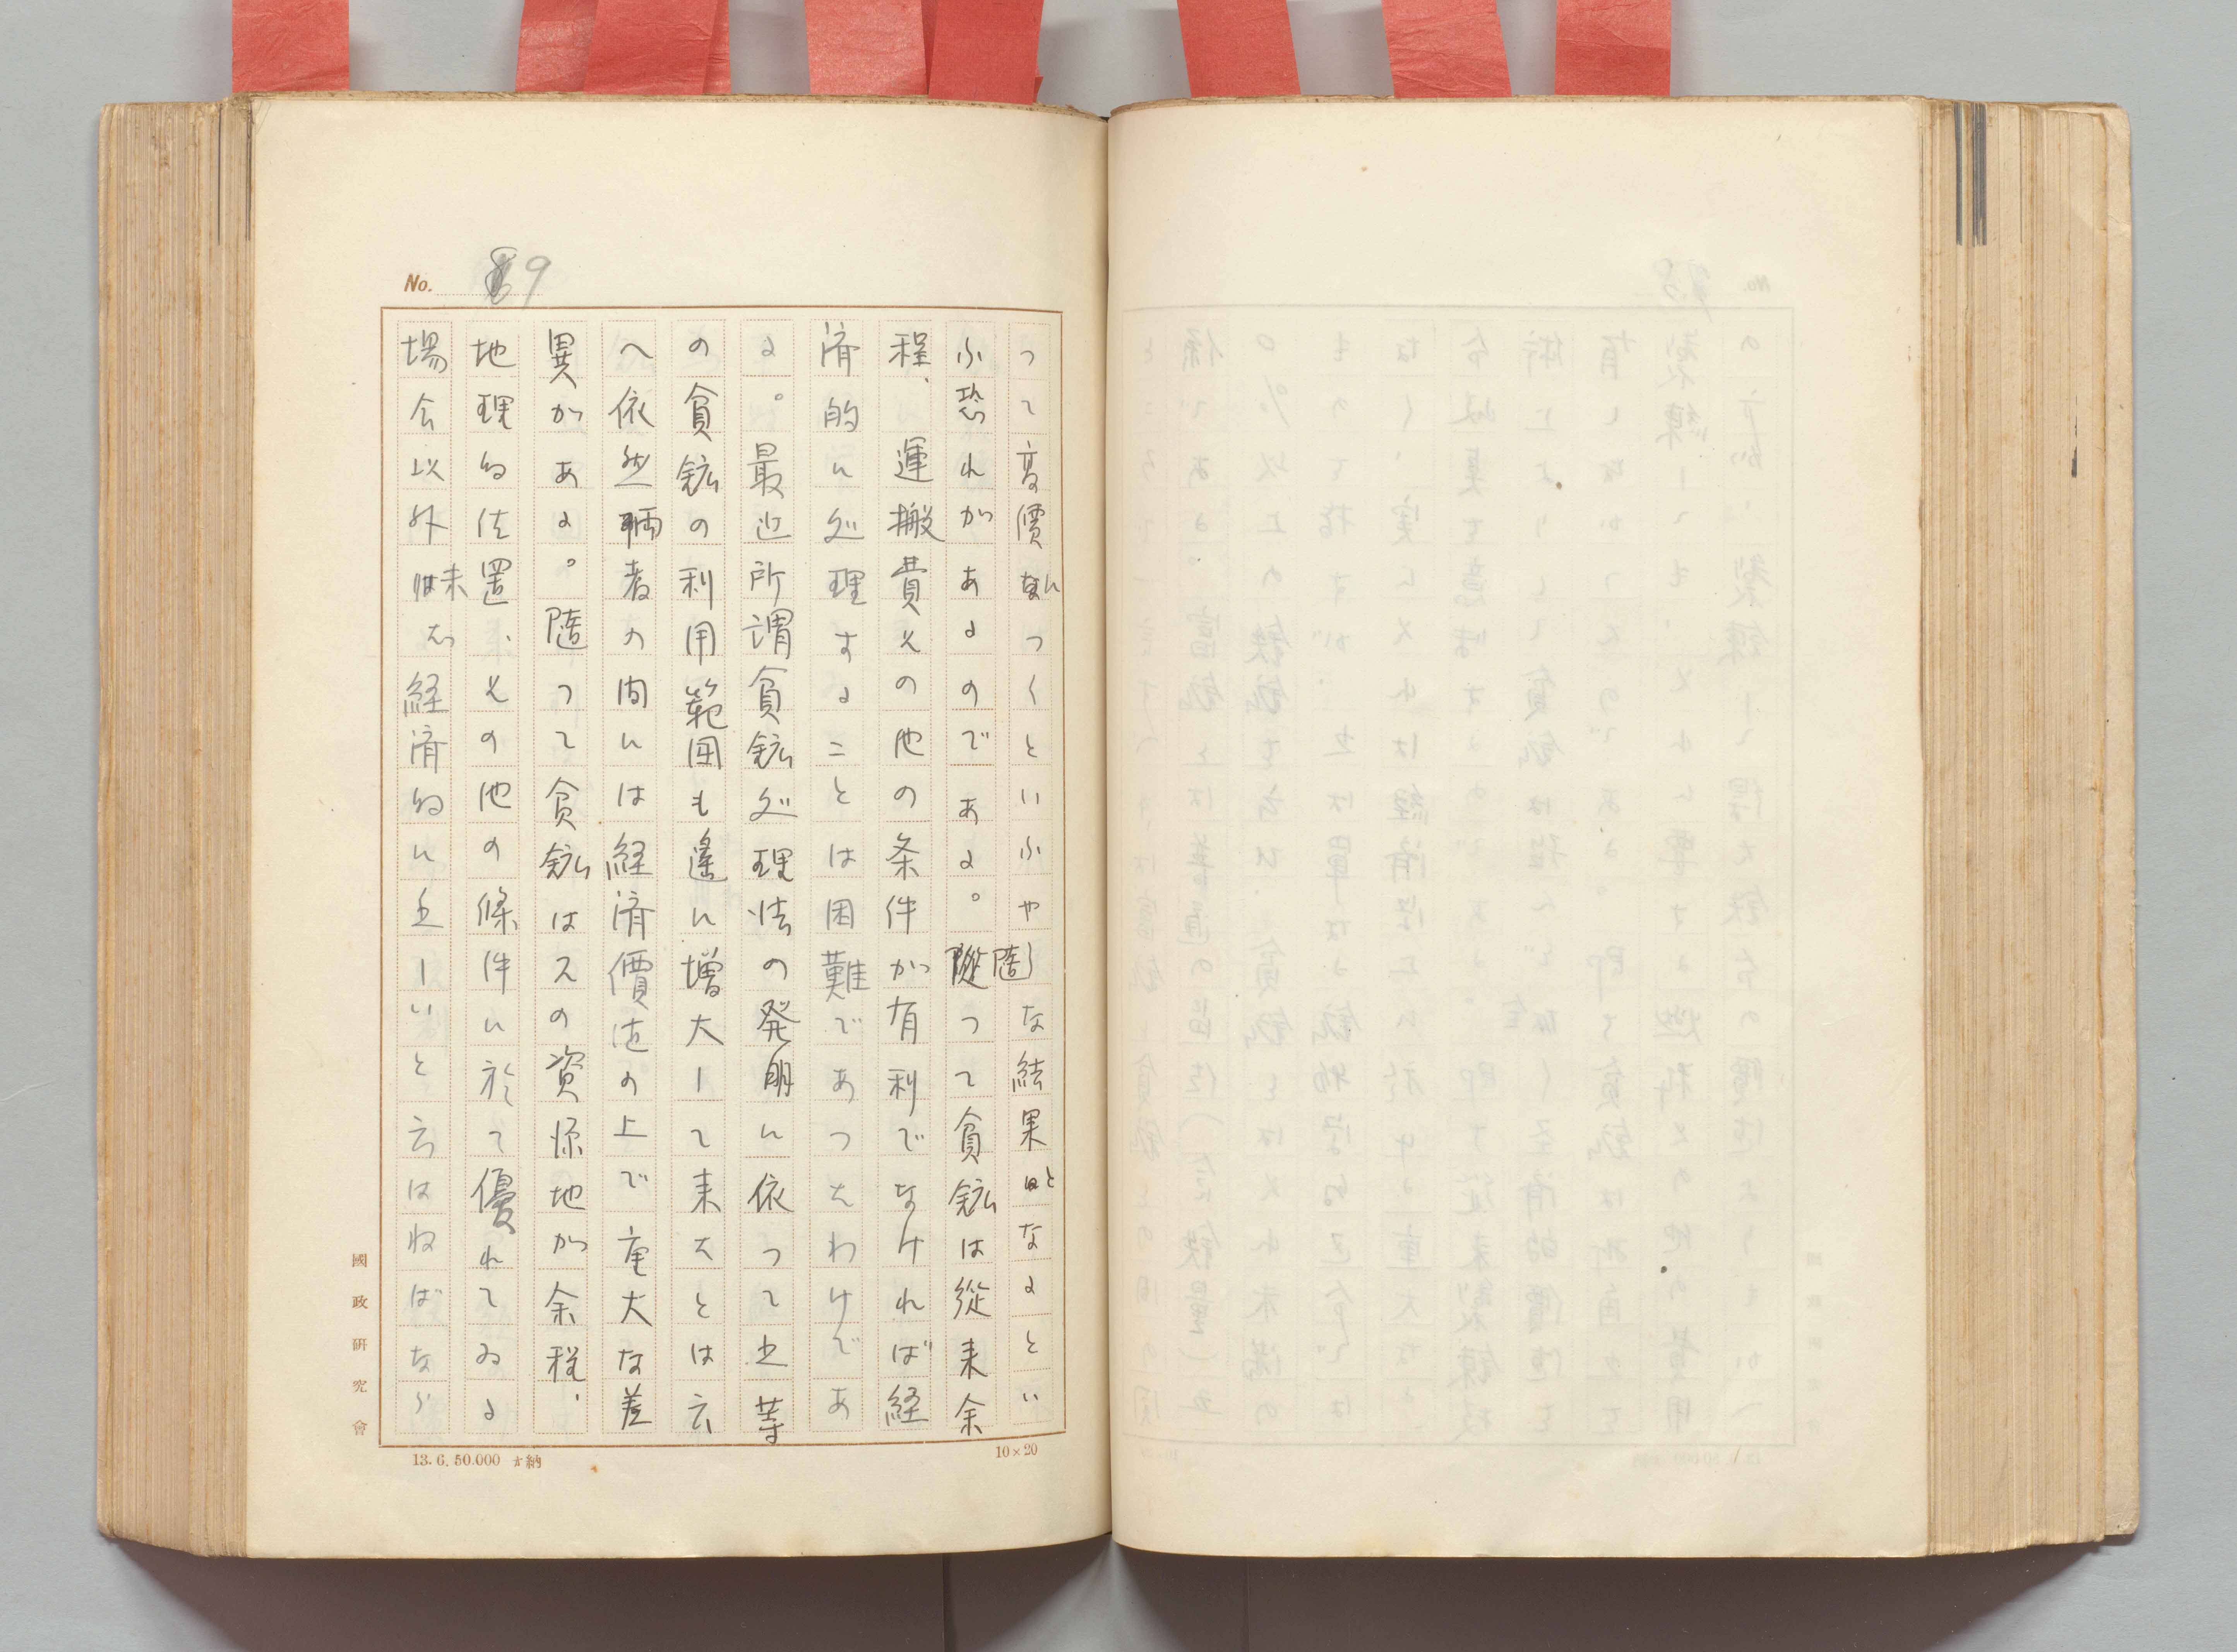 No. 89
つて高價につくといふやうな結果となるとい
ふ恐れがあるのである。随つて貧鉱は從来余
程、運搬費その他の条件が有利でなければ経
済的に処理することは困難であつたわけであ
る。最近所謂貧鉱処理法の発明に依つて之等
の貧鉱の利用範囲も遙に増大して来たとは云
へ依然両者の間には経済價値の上で重大な差
異がある。随つて貧鉱はスの資源地が余程、
地理的位置、その他の條件に於て優れてゐる
場合以外は未だ経済的に乏しいと云はねばなら
國政研究會
13.6.50.000 納
10×20